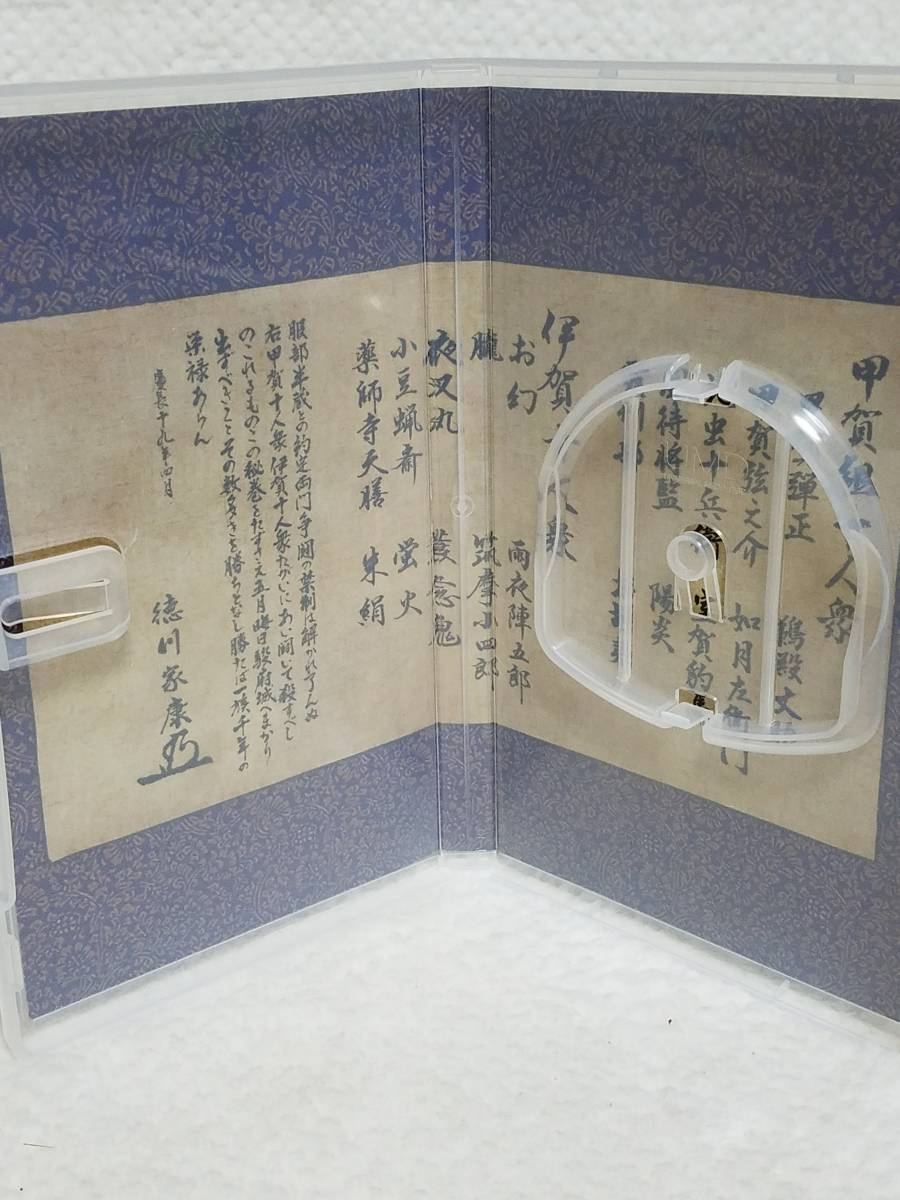 甲賀組十人衆
弾正 鵜殿丈
甲賀弦之介 如月左衛門
虫十兵衛 室賀豹
待将監 陽炎
伊賀 人衆
お幻 雨夜陣五郎
朧 筑摩小四郎
夜叉丸 蓑念鬼
小豆蝋斎 蛍火
薬師寺天膳 朱絹
服部半蔵との約定両門争闘の禁制は解かれ了んぬ
右甲賀十人衆伊賀十人衆たがいにあい闘いて殺すべし
のこれるものこの秘巻をたずさえ五月晦日駿府城へまかり
出ずべきこと その数多きを勝ちとなし勝たば一族千年の
栄禄あらん
慶長十九年四月
徳川家康